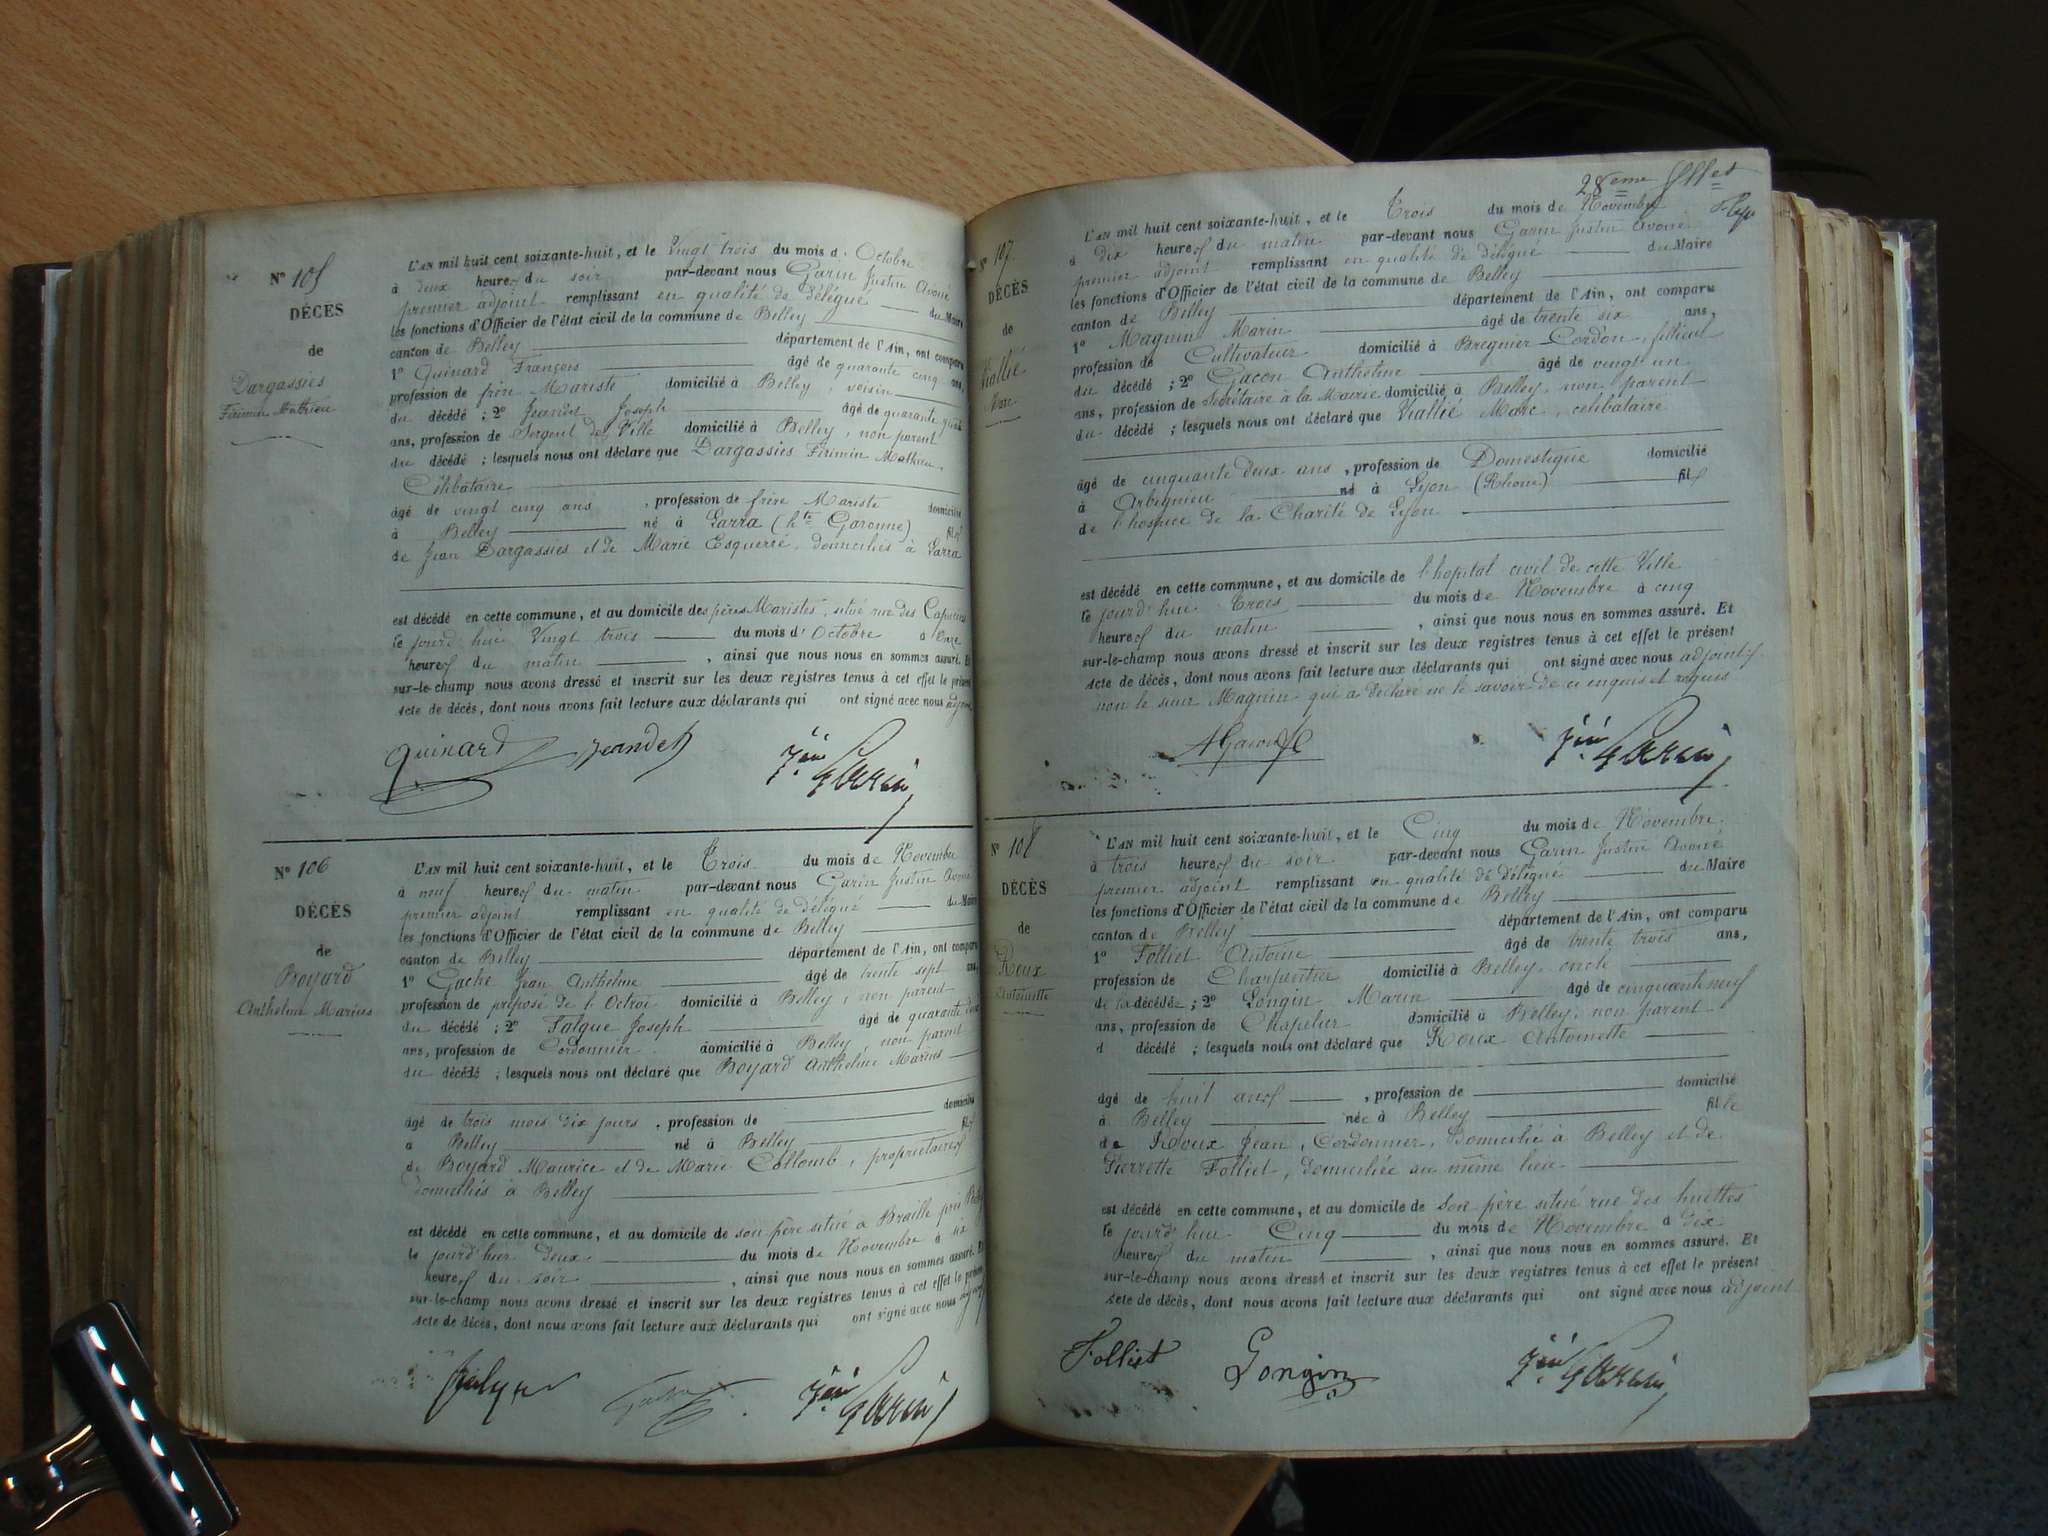 N° 105
DÉCÈS
de
Dargassies
Firimin Mathieu
L'AN mil huit cent soixante-huit, et le Vingt trois du mois d' Octobre
à deux heures du soir par-devant nous Garin Justin Avoué
premier adjoint remplissant en qualité de délégué du Maire
les fonctions d'Officier de l'état civil de la commune de Belley
canton de Belley département de l'Ain, ont comparu
1° Quinard François âgé de quarante cinq ans,
profession de frère Mariste domicilié à Belley, voisin
du décédé ; 2° Jeandet Joseph âgé de quarante
ans, profession de Sergent de Ville domicilié à Belley, non parent
du décédé ; lesquels nous ont déclaré que Dargassies Firimin Mathieu,
Célibataire
âgé de vingt cinq ans , profession de frère Mariste domicilié
à Belley né à Larra (hte Garonne) fils
de Jean Dargassies et de Marie Esquerré, domiciliés à Larra
est décédé en cette commune, et au domicile des pères Maristes, situé rue des Capucins
le jourd'hui Vingt trois du mois d' Octobre à onze
heures du matin , ainsi que nous nous en sommes assuré. Et
sur-le-champ nous avons dressé et inscrit sur les deux registres tenus à cet effet le présent
acte de décès, dont nous avons fait lecture aux déclarants qui ont signé avec nous adjoint
Quinard Jeandet Jin Garin
N° 106
DÉCÈS
de
Boyard
Anthelme Marius
L'AN mil huit cent soixante-huit, et le Trois du mois de Novembre
à neuf heures du matin par-devant nous Garin Justin Avoué
premier adjoint remplissant en qualité de délégué du Maire
les fonctions d'Officier de l'état civil de la commune de Belley
canton de Belley département de l'Ain, ont comparu
1° Gache Jean Anthelme âgé de trente sept ans,
profession de préposé de l'Octroi domicilié à Belley, non parent
du décédé ; 2° Falque Joseph âgé de quarante
ans, profession de Cordonnier domicilié à Belley non parent
du décédé ; lesquels nous ont déclaré que Boyard Anthelme Marius
âgé de trois mois dix jours , profession de domicilié
à Belley né à Belley fils
de Boyard Maurice et de Marie Collomb, propriétaires
domiciliés à Belley
est décédé en cette commune, et au domicile de son père situé à Braille près Belley
le jourd'hier deux du mois de Novembre à six
heures du soir , ainsi que nous nous en sommes assuré. Et
sur-le-champ nous avons dressé et inscrit sur les deux registres tenus à cet effet le présent
acte de décès, dont nous avons fait lecture aux déclarants qui ont signé avec nous adjoint
Jin Garin
28eme
N° 107
DÉCÈS
de
Viallié
Marc
L'AN mil huit cent soixante-huit, et le Trois du mois de Novembre
à dix heures du matin par-devant nous Garin Justin Avoué
premier adjoint remplissant en qualité de délégué du Maire
les fonctions d'Officier de l'état civil de la commune de Belley
canton de Belley département de l'Ain, ont comparu
1° Magnin Marin âgé de trente six ans,
profession de Cultivateur domicilié à Bregnier-Cordon, filleul
du décédé ; 2° Gacon Anthelme âgé de vingt un
ans, profession de Secrétaire à la Mairie domicilié à Belley, non parent
du décédé ; lesquels nous ont déclaré que Viallié Marc, célibataire
âgé de cinquante deux ans , profession de Domestique domicilié
à Arbignieu né à Lyon (Rhône) fils
de l'hospice de la Charité de Lyon
est décédé en cette commune, et au domicile de l'hopital civil de cette Ville
le jourd'hui Trois du mois de Novembre à cinq
heures du matin , ainsi que nous nous en sommes assuré. Et
sur-le-champ nous avons dressé et inscrit sur les deux registres tenus à cet effet le présent
acte de décès, dont nous avons fait lecture aux déclarants qui ont signé avec nous adjoint
non le sieur Magnin qui a déclaré ne le savoir de ce enquis et requis
AGacon Jin Garin
N° 108
DÉCÈS
de
Roux
Antoinette
L'AN mil huit cent soixante-huit, et le Cinq du mois de Novembre
à trois heures du soir par-devant nous Garin Justin Avoué
premier adjoint remplissant en qualité de délégué du Maire
les fonctions d'Officier de l'état civil de la commune de Belley
canton de Belley département de l'Ain, ont comparu
1° Folliet Antoine âgé de trente trois ans,
profession de Charpentier domicilié à Belley, oncle
de la décédée ; 2° Longin Marin âgé de cinquante neuf
ans, profession de Chapelier domicilié à Belley, non parent
d décédé ; lesquels nous ont déclaré que Roux Antoinette
âgé de huit ans , profession de domicilié
à Belley née à Belley fille
de Roux Jean, Cordonnier, Domicilié à Belley et de
Pierrette Folliet, domiciliée au même lieu
est décédé en cette commune, et au domicile de son père situé rue des huettes
le jourd'hui Cinq du mois de Novembre à dix
heures du matin , ainsi que nous nous en sommes assuré. Et
sur-le-champ nous avons dressé et inscrit sur les deux registres tenus à cet effet le présent
acte de décès, dont nous avons fait lecture aux déclarants qui ont signé avec nous adjoint
Folliet Longin Jin Garin